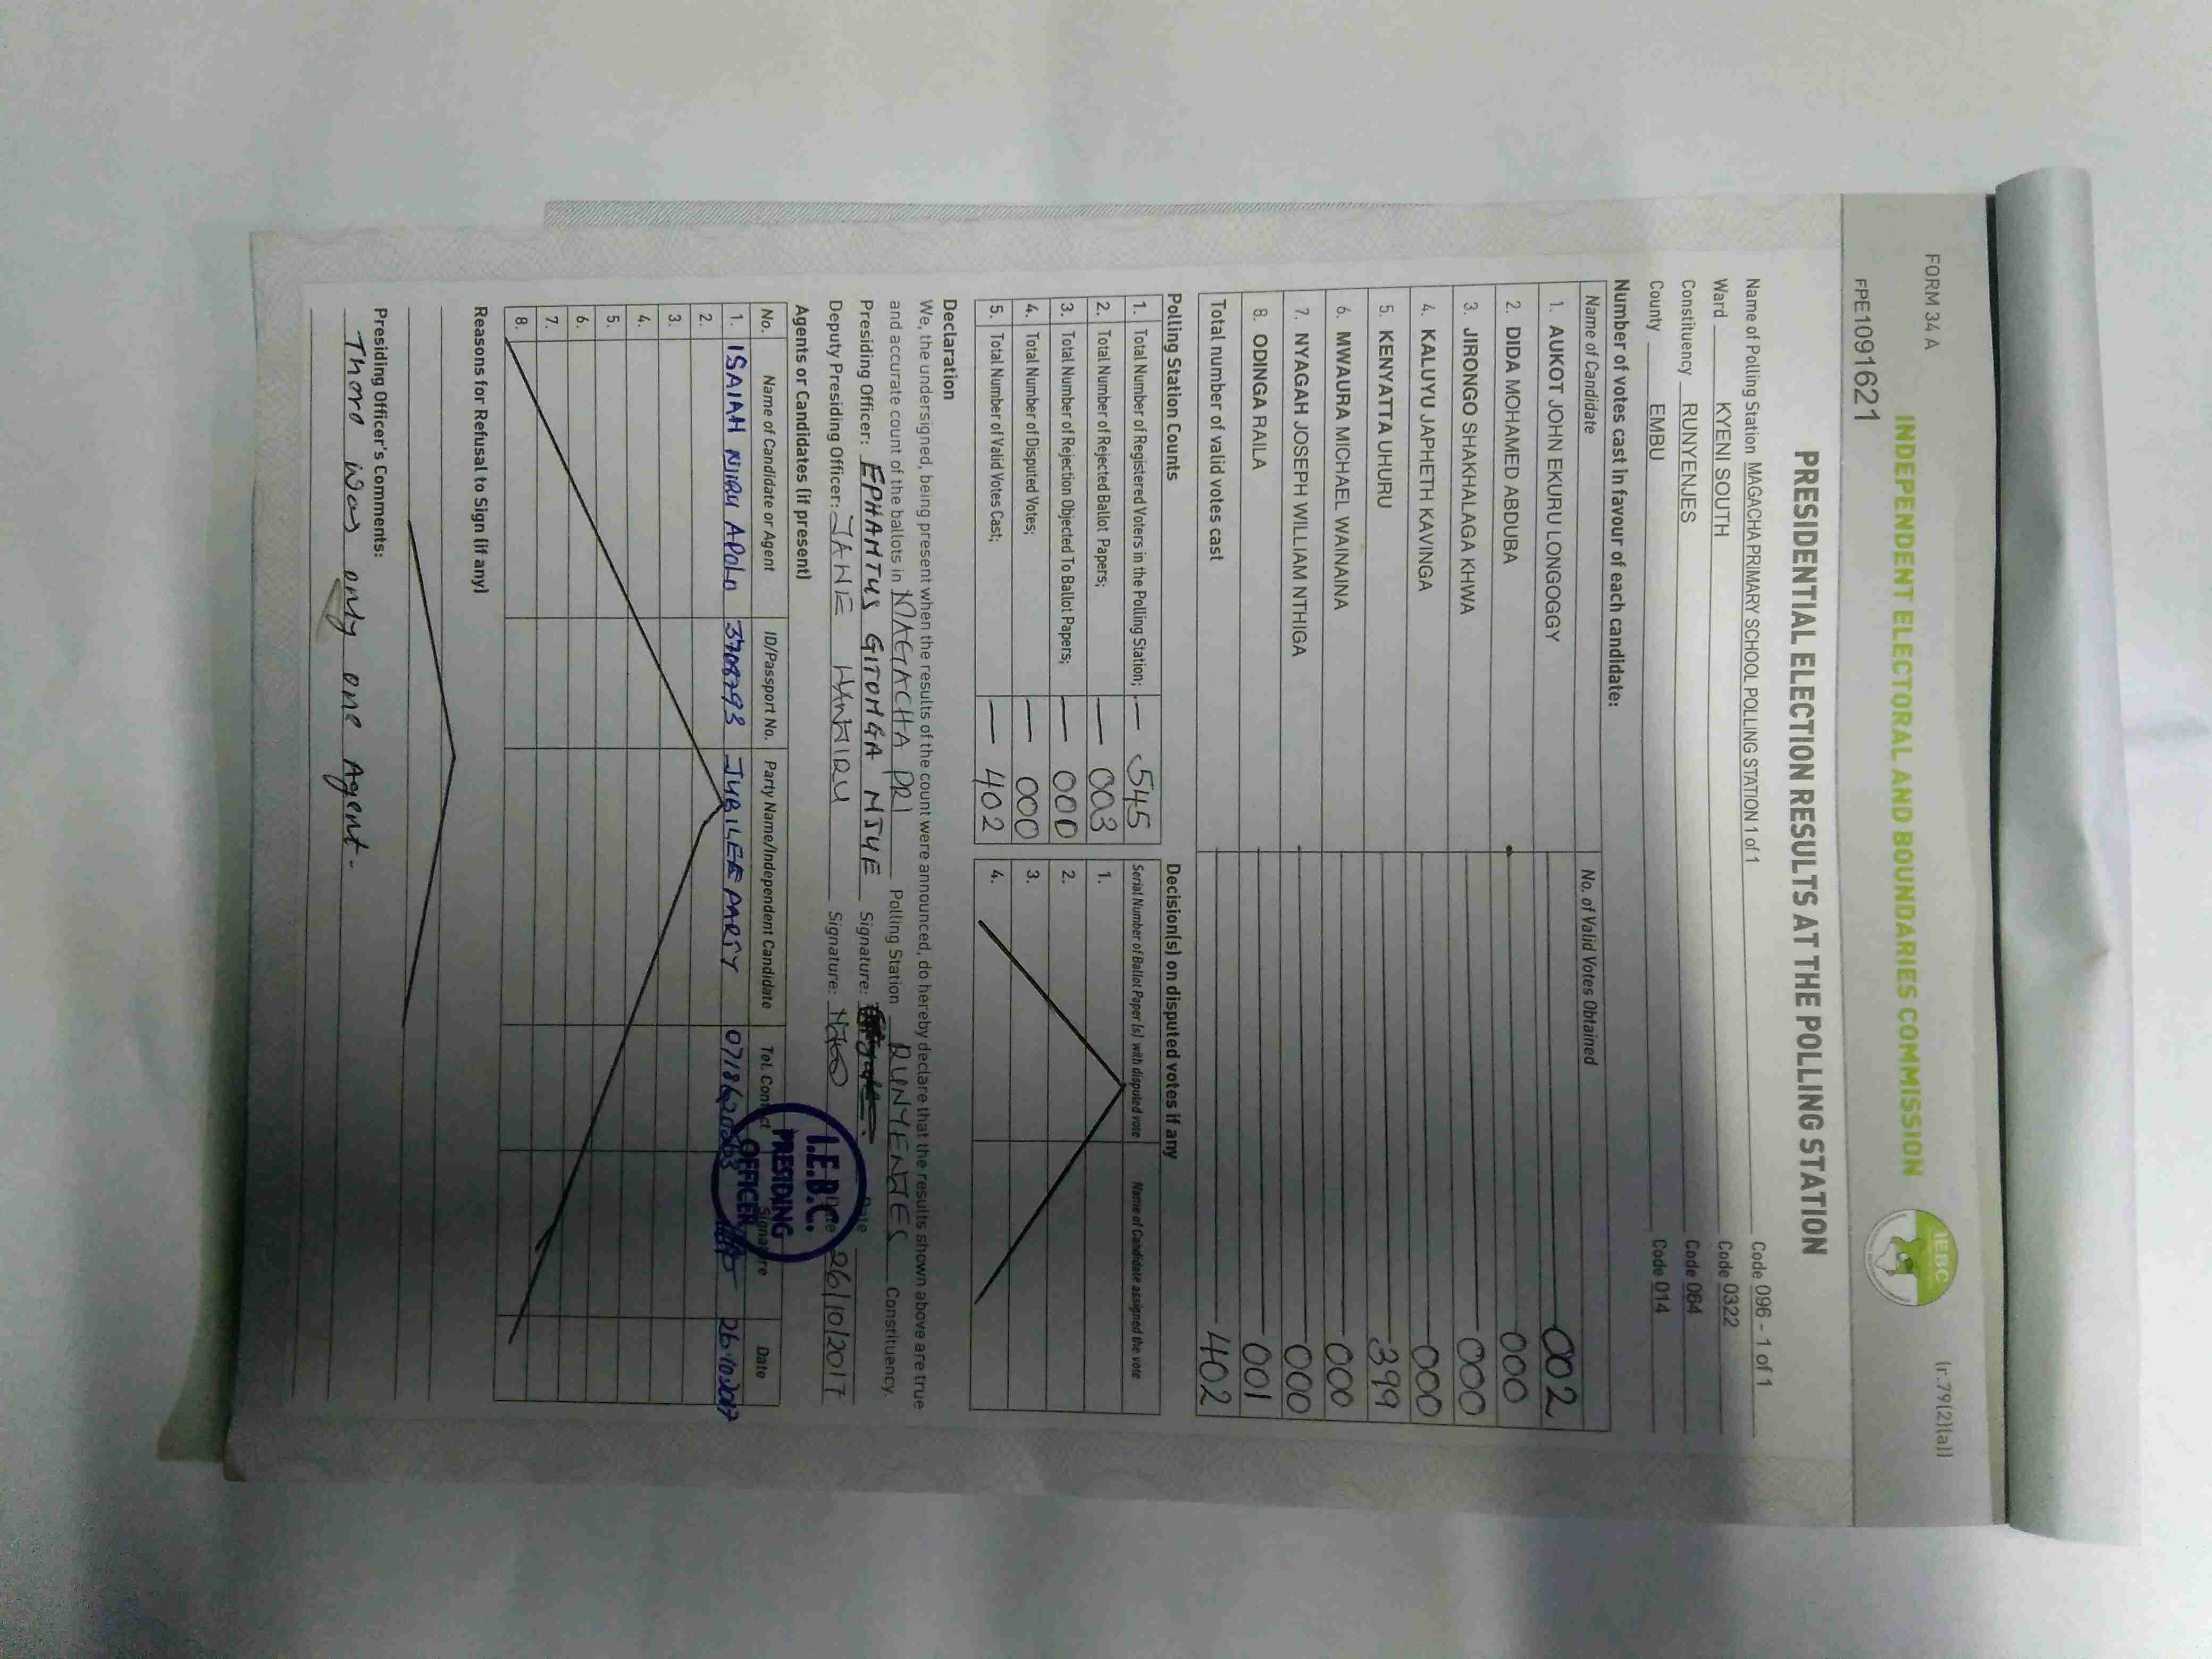 FORM 34 A
(r.79(2)(a))
INDEPENDENT ELECTORAL AND BOUNDARIES COMMISSION
IEBC
FPE1091621
PRESIDENTIAL ELECTION RESULTS AT THE POLLING STATION
Name of Polling Station MAGACHA PRIMARY SCHOOL POLLING STATION 1 of 1 Code 096 - 1 of 1
Ward KYENI SOUTH Code 0322
Constituency RUNYENJES Code 064
County EMBU Code 014
Number of votes cast in favour of each candidate:
Name of Candidate No. of Valid Votes Obtained
1. AUKOT JOHN EKURU LONGOGGY 002
2. DIDA MOHAMED ABDUBA 000
3. JIRONGO SHAKHALAGA KHWA 000
4. KALUYU JAPHETH KAVINGA 000
5. KENYATTA UHURU 399
6. MWAURA MICHAEL WAINAINA 000
7. NYAGAH JOSEPH WILLIAM NTHIGA 000
8. ODINGA RAILA 001
Total number of valid votes cast 402
Polling Station Counts
1. Total Number of Registered Voters in the Polling Station; 545
2. Total Number of Rejected Ballot Papers; 003
3. Total Number of Rejection Objected To Ballot Papers; 000
4. Total Number of Disputed Votes; 000
5. Total Number of Valid Votes Cast; 402
Decision(s) on disputed votes if any
Serial Number of Ballot Paper (s) with disputed vote Name of Candidate assigned the vote
1.
2.
3.
4.
Declaration
We, the undersigned, being present when the results of the count were announced, do hereby declare that the results shown above are true
and accurate count of the ballots in MAGACHA PRI Polling Station RUNYENJES Constituency.
Presiding Officer: EPHANTUS GITONGA NJUE Signature: Date
Deputy Presiding Officer: JANE WANJIRU Signature: Date 26/10/2017
I.E.B.C.
PRESIDING
OFFICER
Agents or Candidates (if present)
No. Name of Candidate or Agent ID/Passport No. Party Name/Independent Candidate Tel. Contact Signature Date
1. ISAIAH NJIRU APOLO 3708293 JUBILEE PARTY 26.10.2017
2.
3.
4.
5.
6.
7.
8.
Reasons for Refusal to Sign (if any)
Presiding Officer's Comments:
There was only one Agent.